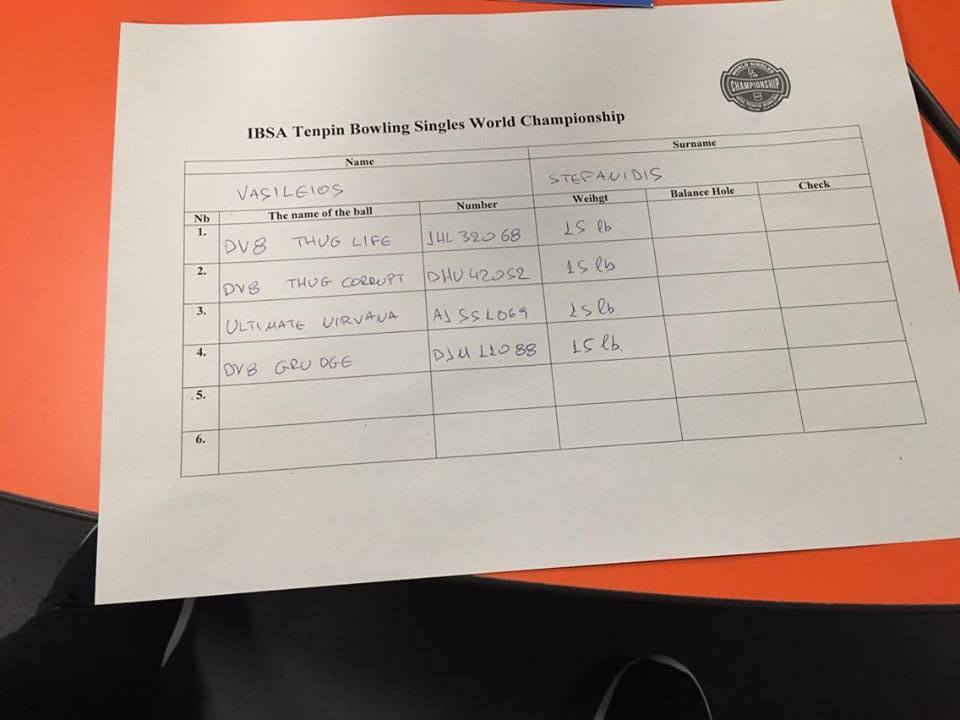 WORLD SINGLES
CHAMPIONSHIP
IBSA TENPIN BOWLING
IBSA Tenpin Bowling Singles World Championship
Name Surname
VASILEIOS STEFANIDIS
Nb The name of the ball Number Weihgt Balance Hole Check
1. DV8 THUG LIFE J4L 32068 15 lb
2. DV8 THUG CORRUPT DHU 42052 15 lb
3. ULTIMATE NIRVANA 15 lb.
4. DV8 GRUDGE DJM 11088 15 lb.
5.
6.